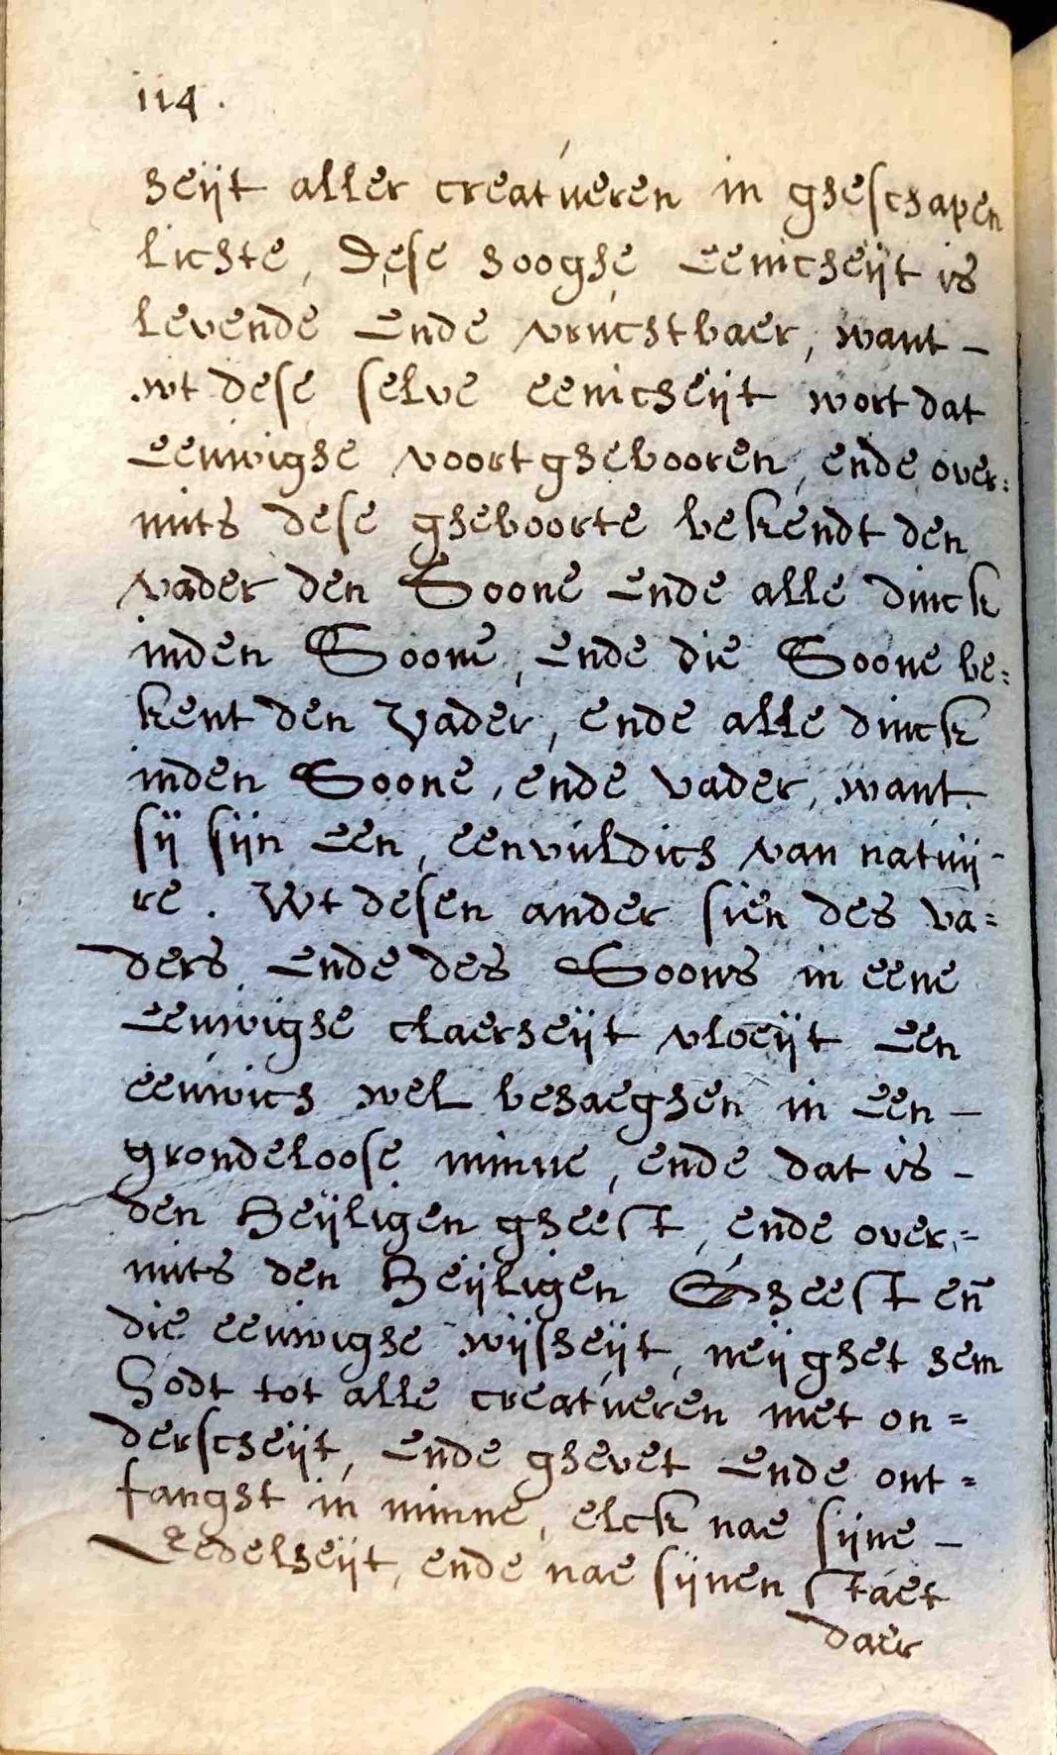 114.
heijt aller creatueren in gheschapen
lichte, Dese hooghe eenicheijt is
levende ende vruchtbaer, want -
wt dese selve eenicheijt wort dat
eeuwighe voortghebooren, ende over=
mits dese gheboorte bekendt den
vader den Soone ende alle dinck
inden Soone, ende die Soone be=
kent den Vader, ende alle dinck
inden Soone, ende vader, want
sij sijn een, eenvuldich van natuij-
re. Wt desen ander sien des va=
ders ende des Soons in eene
eeuwighe claerheijt vloeijt een
eeuwich wel behaeghen in een -
grondeloose minne, ende dat is -
den Heijligen gheest, ende over=
mits den Heijligen Gheest en̄
die eeuwighe wijsheijt, neijghet hem
Godt tot alle creatueren met on=
derscheijt, ende ghevet ende ont=
fanght in minne, elck nae sijne -
Eedelheijt, ende nae sijnen staet
daer